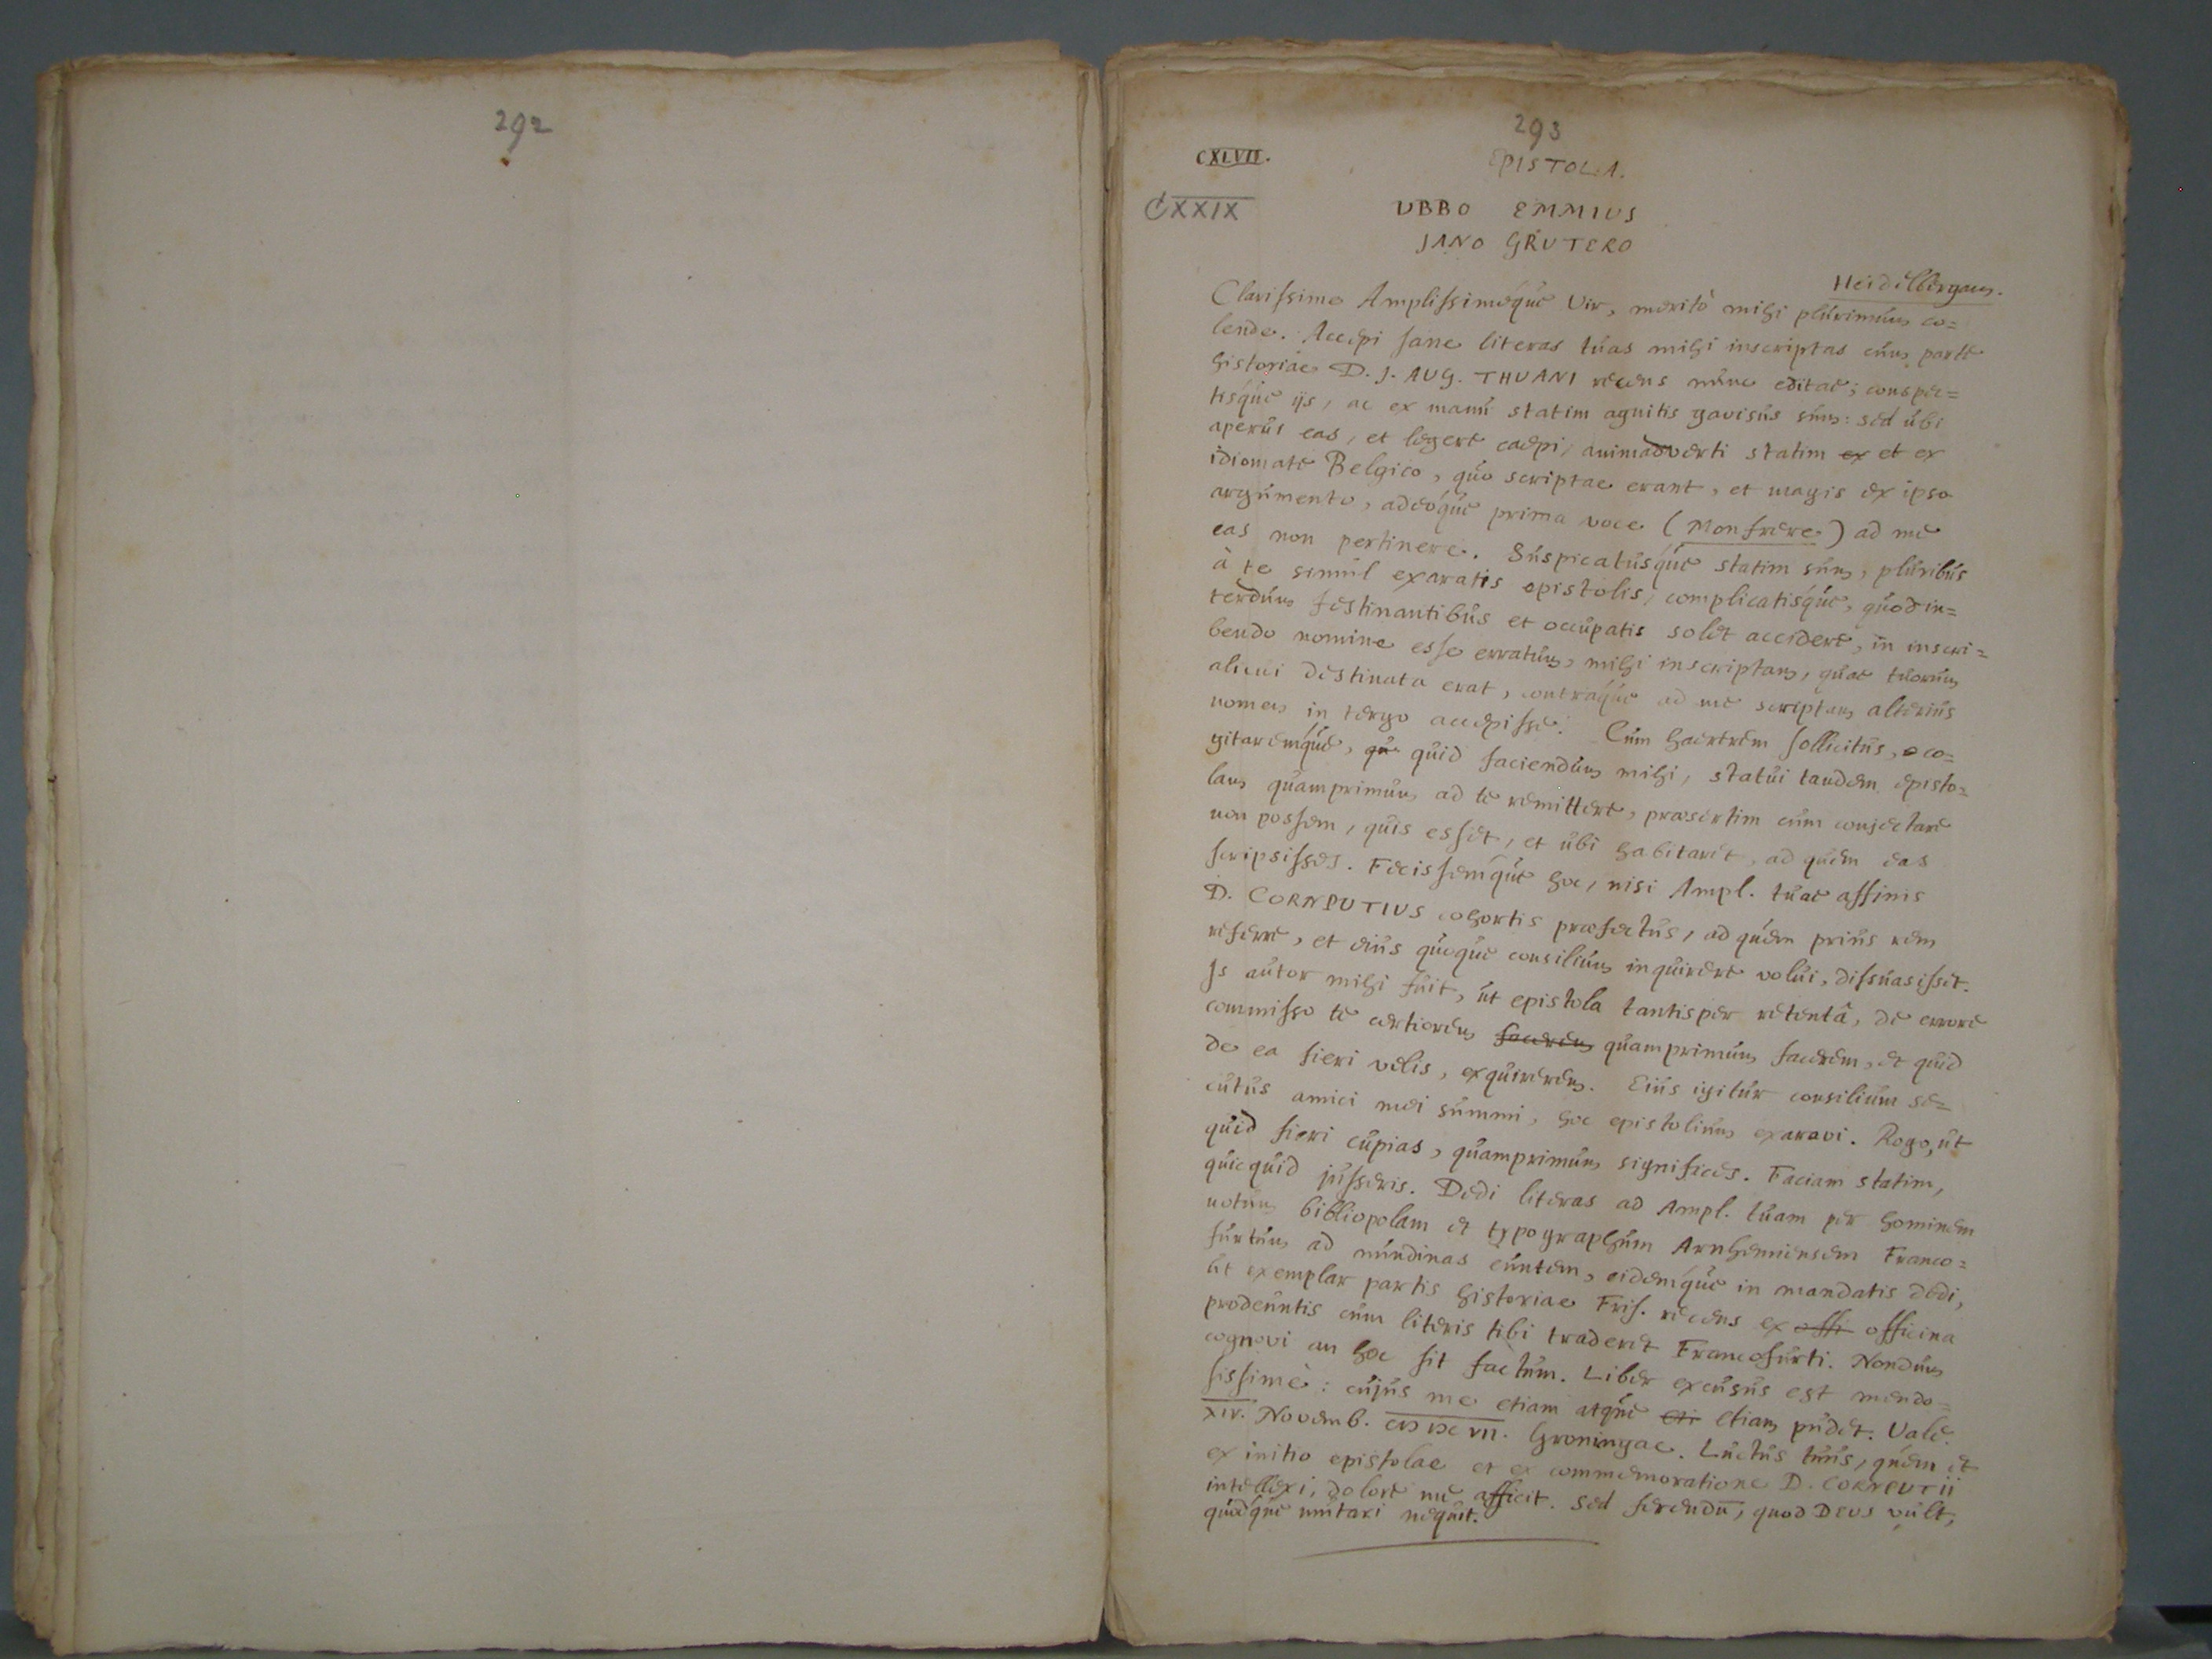 292
293
CXLVII.
EPISTOLA.
CXXIX
UBBO EMMIUS
JANO GRUTERO
Heidelbergam.
Clarissime Amplissimeque Vir, meritò mihi plurimum co=
lende. Accepi sane literas tuas mihi inscriptas cum parte
historiae D. J. AUG. THUANI recens nunc editae; conspec=
tisque ijs, ac ex manu statim agnitis gavisus sum: sed ubi
aperui eas, et legere caepi, animadverti statim ex et ex
idiomate Belgico, quo scriptae erant, et magis ex ipso
argumento, adeoque prima voce (Monfrere) ad me
eas non pertinere. Suspicatusque statim sum, pluribus
à te simul exaratis epistolis, complicatisque, quod in=
terdum festinantibus et occupatis solet accidere, in inscri=
bendo nomine esse erratum, mihi inscriptam, quae tuorum
alicui destinata erat, contraque ad me scriptam alterius
nomen in tergo accepisse. Cum haererem sollicitus, co=
gitaremque, qu quid faciendum mihi, statui tandem episto=
lam quamprimum ad te remittere, praesertim cum conjectare
non possem, quis esset, et ubi habitaret, ad quem eas
scripsisses. Fecissemque hoc, nisi Ampl. tuae affinis
D. CORNPUTIUS cohortis praefectus, ad quem prius rem
referre, et eius quoque consilium inquirere volui, dissuasisset.
Is autor mihi fuit, ut epistola tantisper retentâ, de errore
commisso te certiorem facerem quamprimum facerem, et quid
de ea fieri velis, exquirerem. Eius igitur consilium se=
cutus amici mei summi, hoc epistolium exaravi. Rogo, ut
quid fieri cupias, quamprimum significes. Faciam statim,
quicquid jusseris. Dedi literas ad Ampl. tuam per hominem
notum bibliopolam et typographum Arnhemiensem Franco=
furtum ad nundinas euntem, eidemque in mandatis dedi,
ut exemplar partis historiae Fris. recens ex offi officina
prodeuntis cum literis tibi traderet Francofurti. Nondum
cognovi an hoc sit factum. Liber excusus est mendo=
sissimè: cujus me etiam atque eti etiam pudet. Vale.
XIV. Novemb. CIƆ IƆC VII. Groningae. Luctus tuus, quem et
ex initio epistolae et ex commemoratione D. CORNPUTII
intellexi, dolore me afficit. Sed ferendū, quod DEUS vult,
quodque mutari nequit.